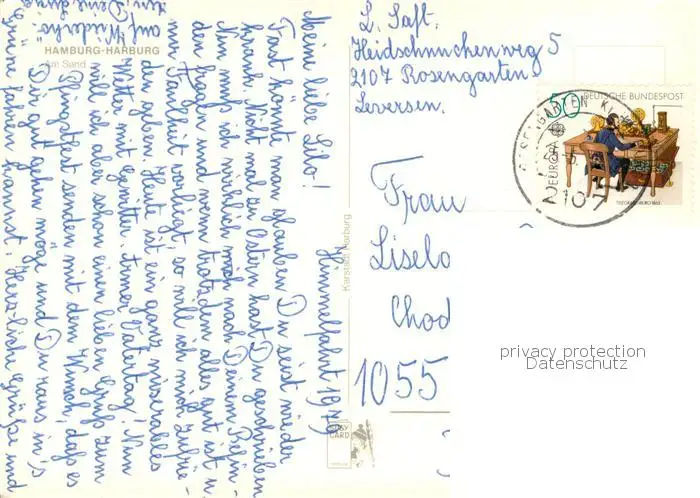 L. Saft.
Heidschnuckenweg 5
2107 Rosengarten
Leversen.
HAMBURG-HARBURG
Am Sand
Himmelfahrt 1979
Meine liebe Lilo!
Fast könnte man glauben Du seist wieder
krank. Nicht mal zu Ostern hast Du geschrieben
Nun muß ich wirklich mich nach Deinem Befin
den fragen und wenn trotzdem alles gut ist u
nur Faulheit vorliegt, so will ich mich zufrie
den geben. Heute ist ein ganz miserables
Wetter mit Gewitter. Armer Vatertag! Nun
will ich aber schon einen lieben Gruß zum
Pfingstfest senden mit dem Wunsch, daß es
Dir gut gehen möge und Du raus in's
Grüne fahren kannst. Herzliche Grüße und
auf Wiederhö-
ren, Deine
Karstadt Harburg
50 DEUTSCHE BUNDESPOST
EUROPA
ROSENGARTEN
2107
Frau
Liselo
Chod
1055
privacy protection
Datenschutz